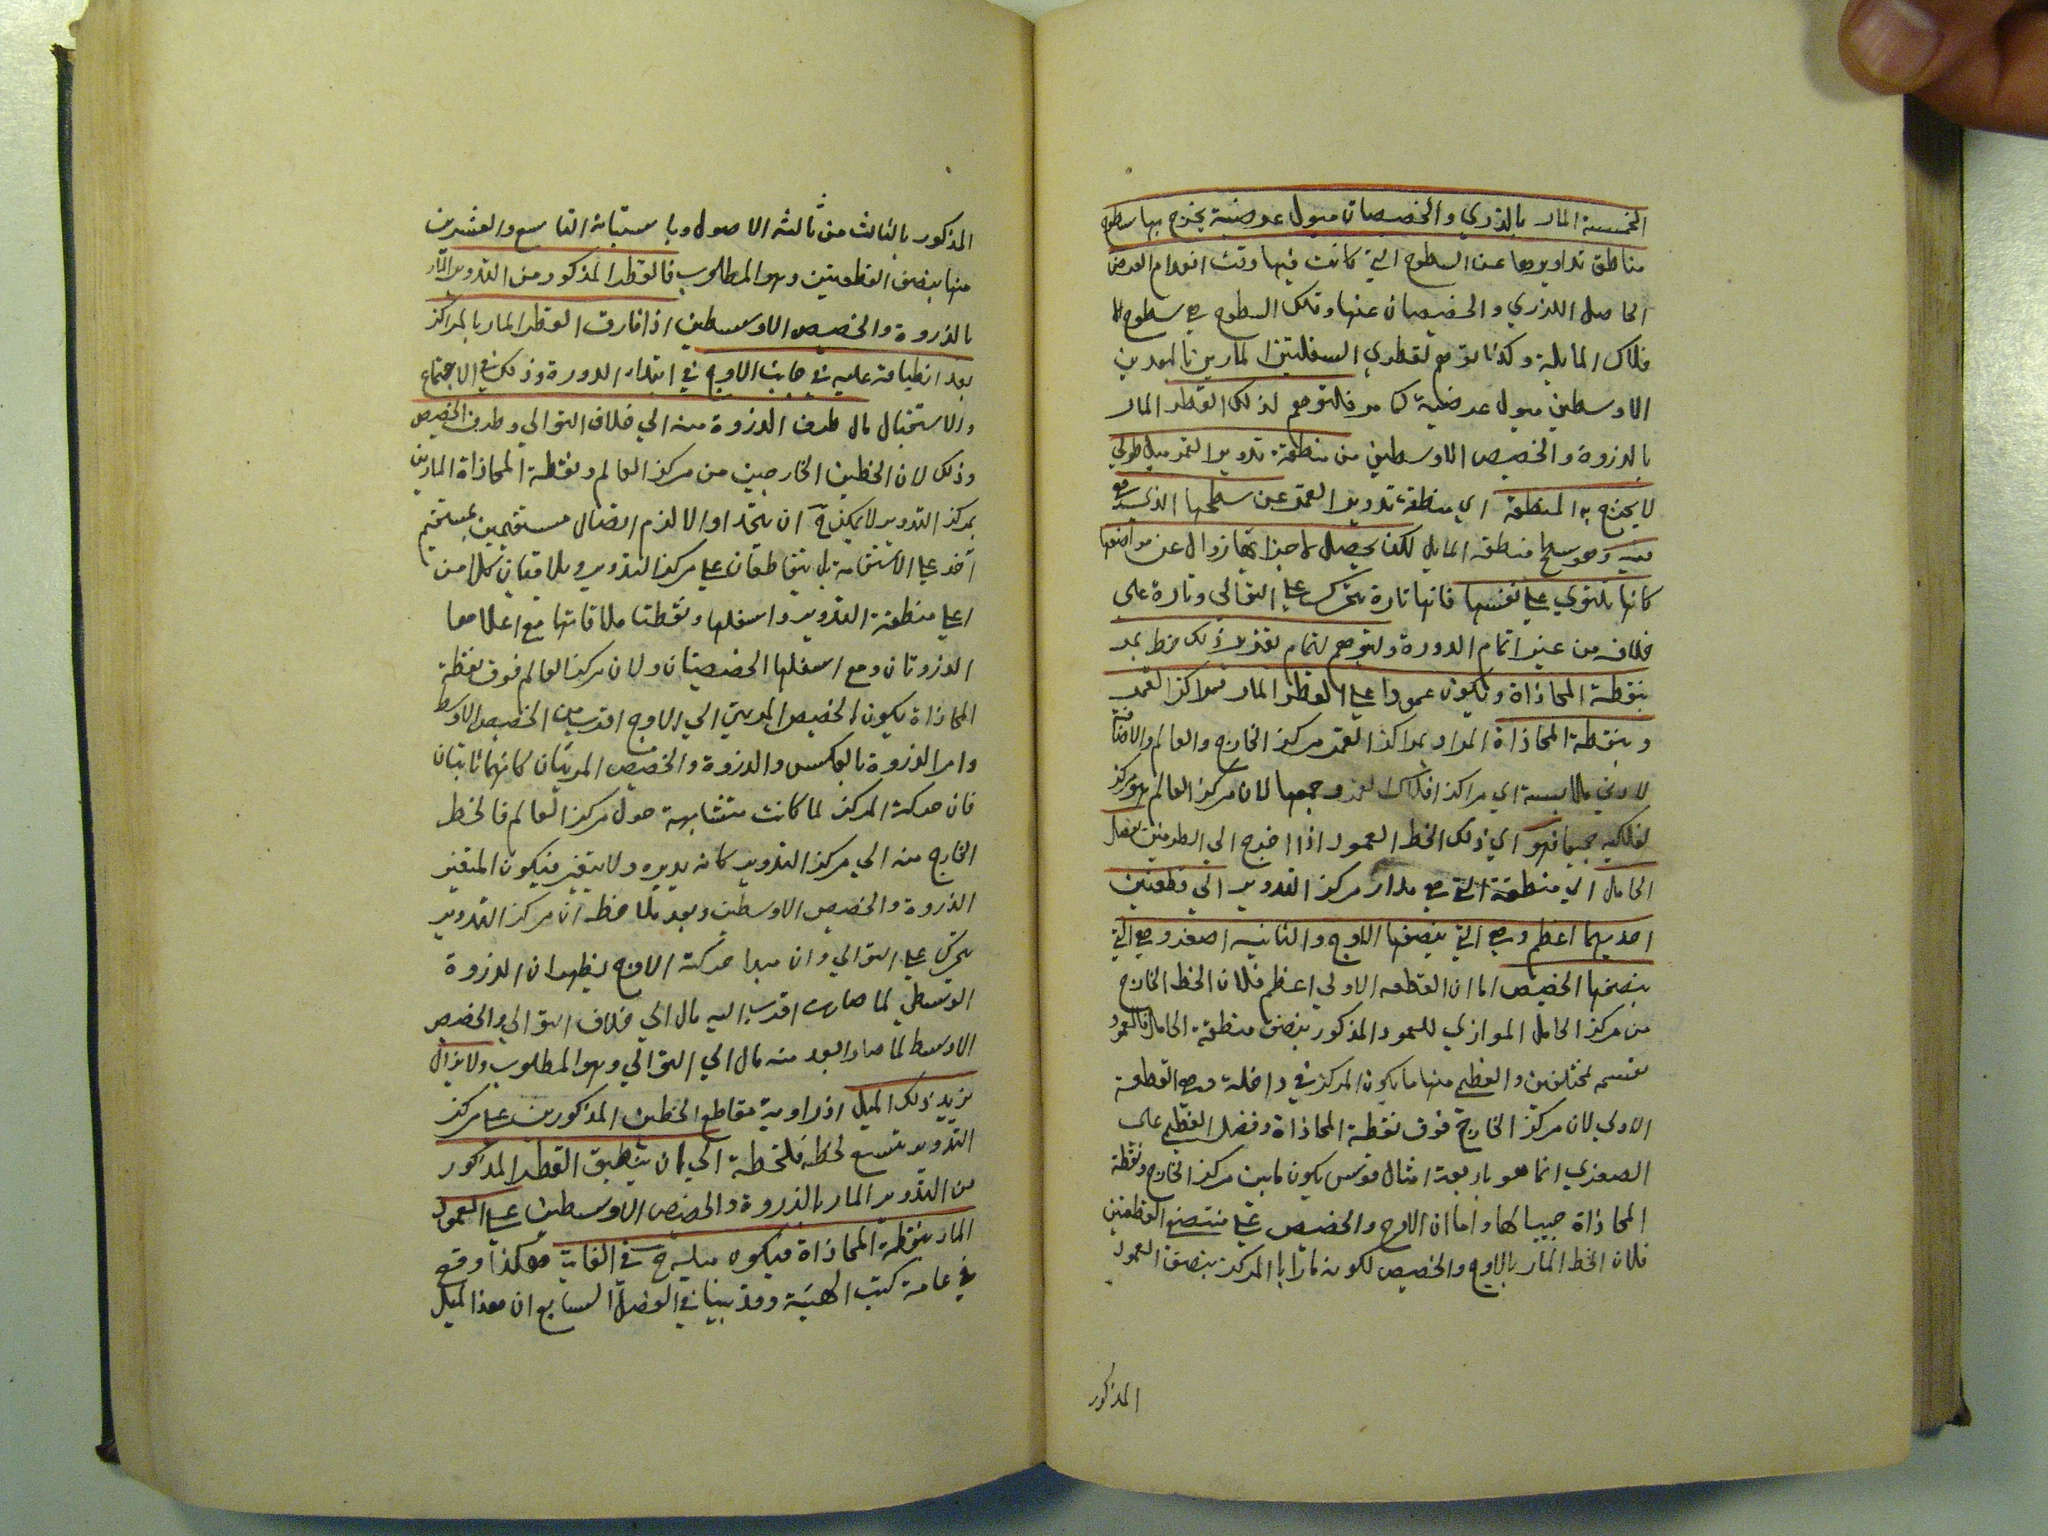 الخمسة المار بالذري والحضيضان ميول عرضية يخرج بها سطوح
مناطق تداويرها عن السطوح التي كانت فيها وقت انعدام العرض
الحاصل للذري والحضيضان عنها وتلك السطوح هي سطوح الا
فلاك المايلة وكذا يتوهم لقطري السفليين المارين بالبعدين
الاوسطين ميول عرضية كما مر فالتوهم لذلك القطر المار
بالذروة والحضيض الاوسطين من منطقة تدوير القمر ميل طولي
لا يخرج به المنطقة اي منطقة تدوير القمر عن سطحها الذي هو
فيه وهو سطح منطقة المايل لكن يحصل لاجزائها زوال عن مواضعها
كانها تلتوي علي نفسها فانها تارة يتحرك علي التوالي وتارة علي
خلافه من غير اتمام الدورة وليتوهم لتمام تقرير ذلك خط يمر
بنقطة المحاذاة ويكون عمودا علي القطر المار بمراكز القمر
وبنقطة المحاذاة المراد بمراكز القمر مركز الخارج والعالم والاضافة
لادني ملابسة اي مراكز افلاك القمر وجمعها لان مركز العالم هو مركز
لفلكيه جميعا فهو اي ذلك الخط العمود اذا اخرج الي الطرفين يفصل
الحامل اي منطقة التي هي مدار مركز التدوير الي قطعتين
احديهما اعظم وهي التي ينصفها الاوج والثانية اصغر وهي التي
ينصفها الحضيض اما ان القطعه الاولي اعظم فلان الخط الخارج
من مركز الحامل الموازي للعمود المذكور ينصف منطقة الحامل فالعمود
يقسمه لمختلفين والعظمي منها ما يكون المركز في داخله وهو القطعة
الاولي لان مركز الخارج فوق نقطة المحاذاة وفضل العظمي علي
الصغري انما هو باربعة امثال قوس يكون مابين مركز الخارج ونقطة
المحاذاة جيبا لها واما ان الاوج والحضيض علي منتصفي القطعتين
فلان الخط المار بالاوج والحضيض لكونه مارا بالمركز ينصف العمود
المذكور
المذكور بالثالث من ثالثه الاصول وباستبانة التاسع والعشرين
منها ينصف القطعتين وهو المطلوب فالقطر المذكور من التدوير المار
بالذروة والحضيض الاوسطين اذا فارق القطر المار بالمراكز
بعد انطباقه عليه في جانب الاوج في ابتداء الدورة وذلك في الاجتماع
والاستقبال مال طرف الذروة منه الي خلاف التوالي وطرف الحضيض
وذلك لان الخطين الخارجين من مركز العالم ونقطة المحاذاة المارين
بمركز التدوير لا يمكن ان يتحدا والا لزم اتصال مستقيمين بمستقيم
آخر علي الاستقامة بل يتقاطعان علي مركز التدوير ويلاقيان كلا من
اعلي منطقة التدوير واسفلها ونقطتا ملاقاتها مع اعلاهما
الذروتان ومع اسفلها الحضيضان ولان مركز العالم فوق نقطة
المحاذاة يكون الحضيض المرئي الي الاوج اقرب من الحضيض الاوسط
وامر الذروة بالعكس والذروة والحضيض المرئيان كانهما ثابتان
فان حركة المركز لما كانت متشابهة حول مركز العالم فالخط
الخارج منه الي مركز التدوير كانه يديره ولا يتغير فيكون المتغير
الذروة والحضيض الاوسطين وبعد ملاحظه ان مركز التدوير
يتحرك علي التوالي وان مبدا حركته الاوج يظهر ان الذروة
الوسطي لما صارت اقرب اليه مال الي خلاف التوالي والحضيض
الاوسط لما صار ابعد منه مال الي التوالي وهو المطلوب ولا يزال
يزيد ذلك الميل اذ زاوية تقاطع الخطين المذكورين علي مركز
التدوير يتسع لحظه فلحظة الي ان ينطبق القطر المذكور
من التدوير المار بالذروة والحضيض الاوسطين علي العمود
المار بنقطة المحاذاة فيكون ميله ح في الغاية هكذا وقع
في عامة كتب الهيئة وقد بينا في الفصل السابع ان هذا الميل